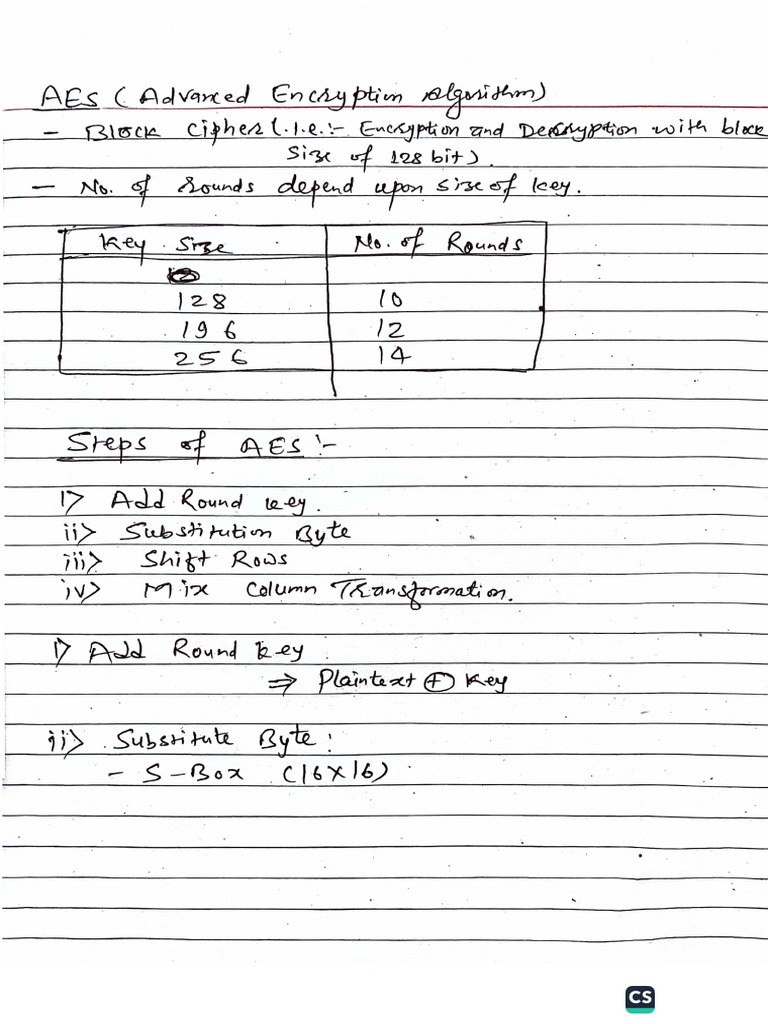 AES (Advanced Encryption Algorithm)
- Block Cipher (.i.e:- Encryption and Decryption with block
size of 128 bit).
- No. of rounds depend upon size of key.
Key Size No. of Rounds
128 10
196 12
256 14
Steps of AES :-
i> Add Round key.
ii> Substitution Byte
iii> Shift Rows
iv> Mix Column Transformation.
i> Add Round key
⇒ Plaintext ⊕ Key
ii> Substitute Byte:
- S-Box (16X16)
CS